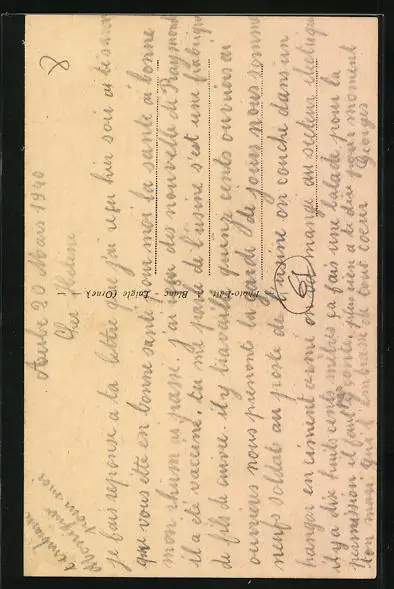 Aube 20 Mars 1940
Cher Helène
je fais reponse a ta lettre que j'ai reçu hier soir ai te savoir
que vous ête en bonne santé pour moi la santé ai bonne
mon rhum ai passé j'ai reçu des nouvelle de Raymond
il a été vacciné. tu me parle de l'usine s'est une fabrique
de fils de cuivre. il y travaille quinze cents ouvriers ai
ouvrières nous prenont la garde de jours nous somme
neufs soldat au poste de l'usine on couche dans un
hangar en ciment armé on mange au secteur électrique
il y a dix huits cents mètres ça fais une balade pour la
permission il faut y conté, plus rien a te dire pour moment
ton mari qui t'embrasse de tout coeur Georges
t'embrasse
Monique
pour moi
Photo-Edit. A. Blanc - Laigle (Orne). - 1